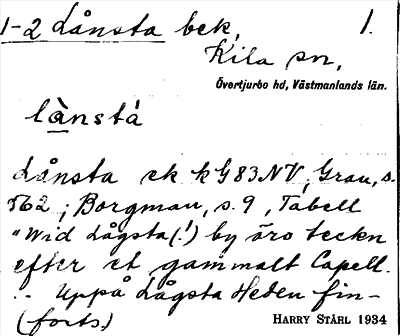 1-2 Lånsta bck, 1.
Kila sn,
Övertjurbo hd, Västmanlands län.
lànstá
Lånsta ek kG83NV, Grau, s.
562; Borgman, s. 9, Tabell
"Wid Lågsta (!) by äro teckn
efter et gammalt Capell.
.. Uppå Lågsta Heden fin-
(forts.) HARRY STÅHL 1934